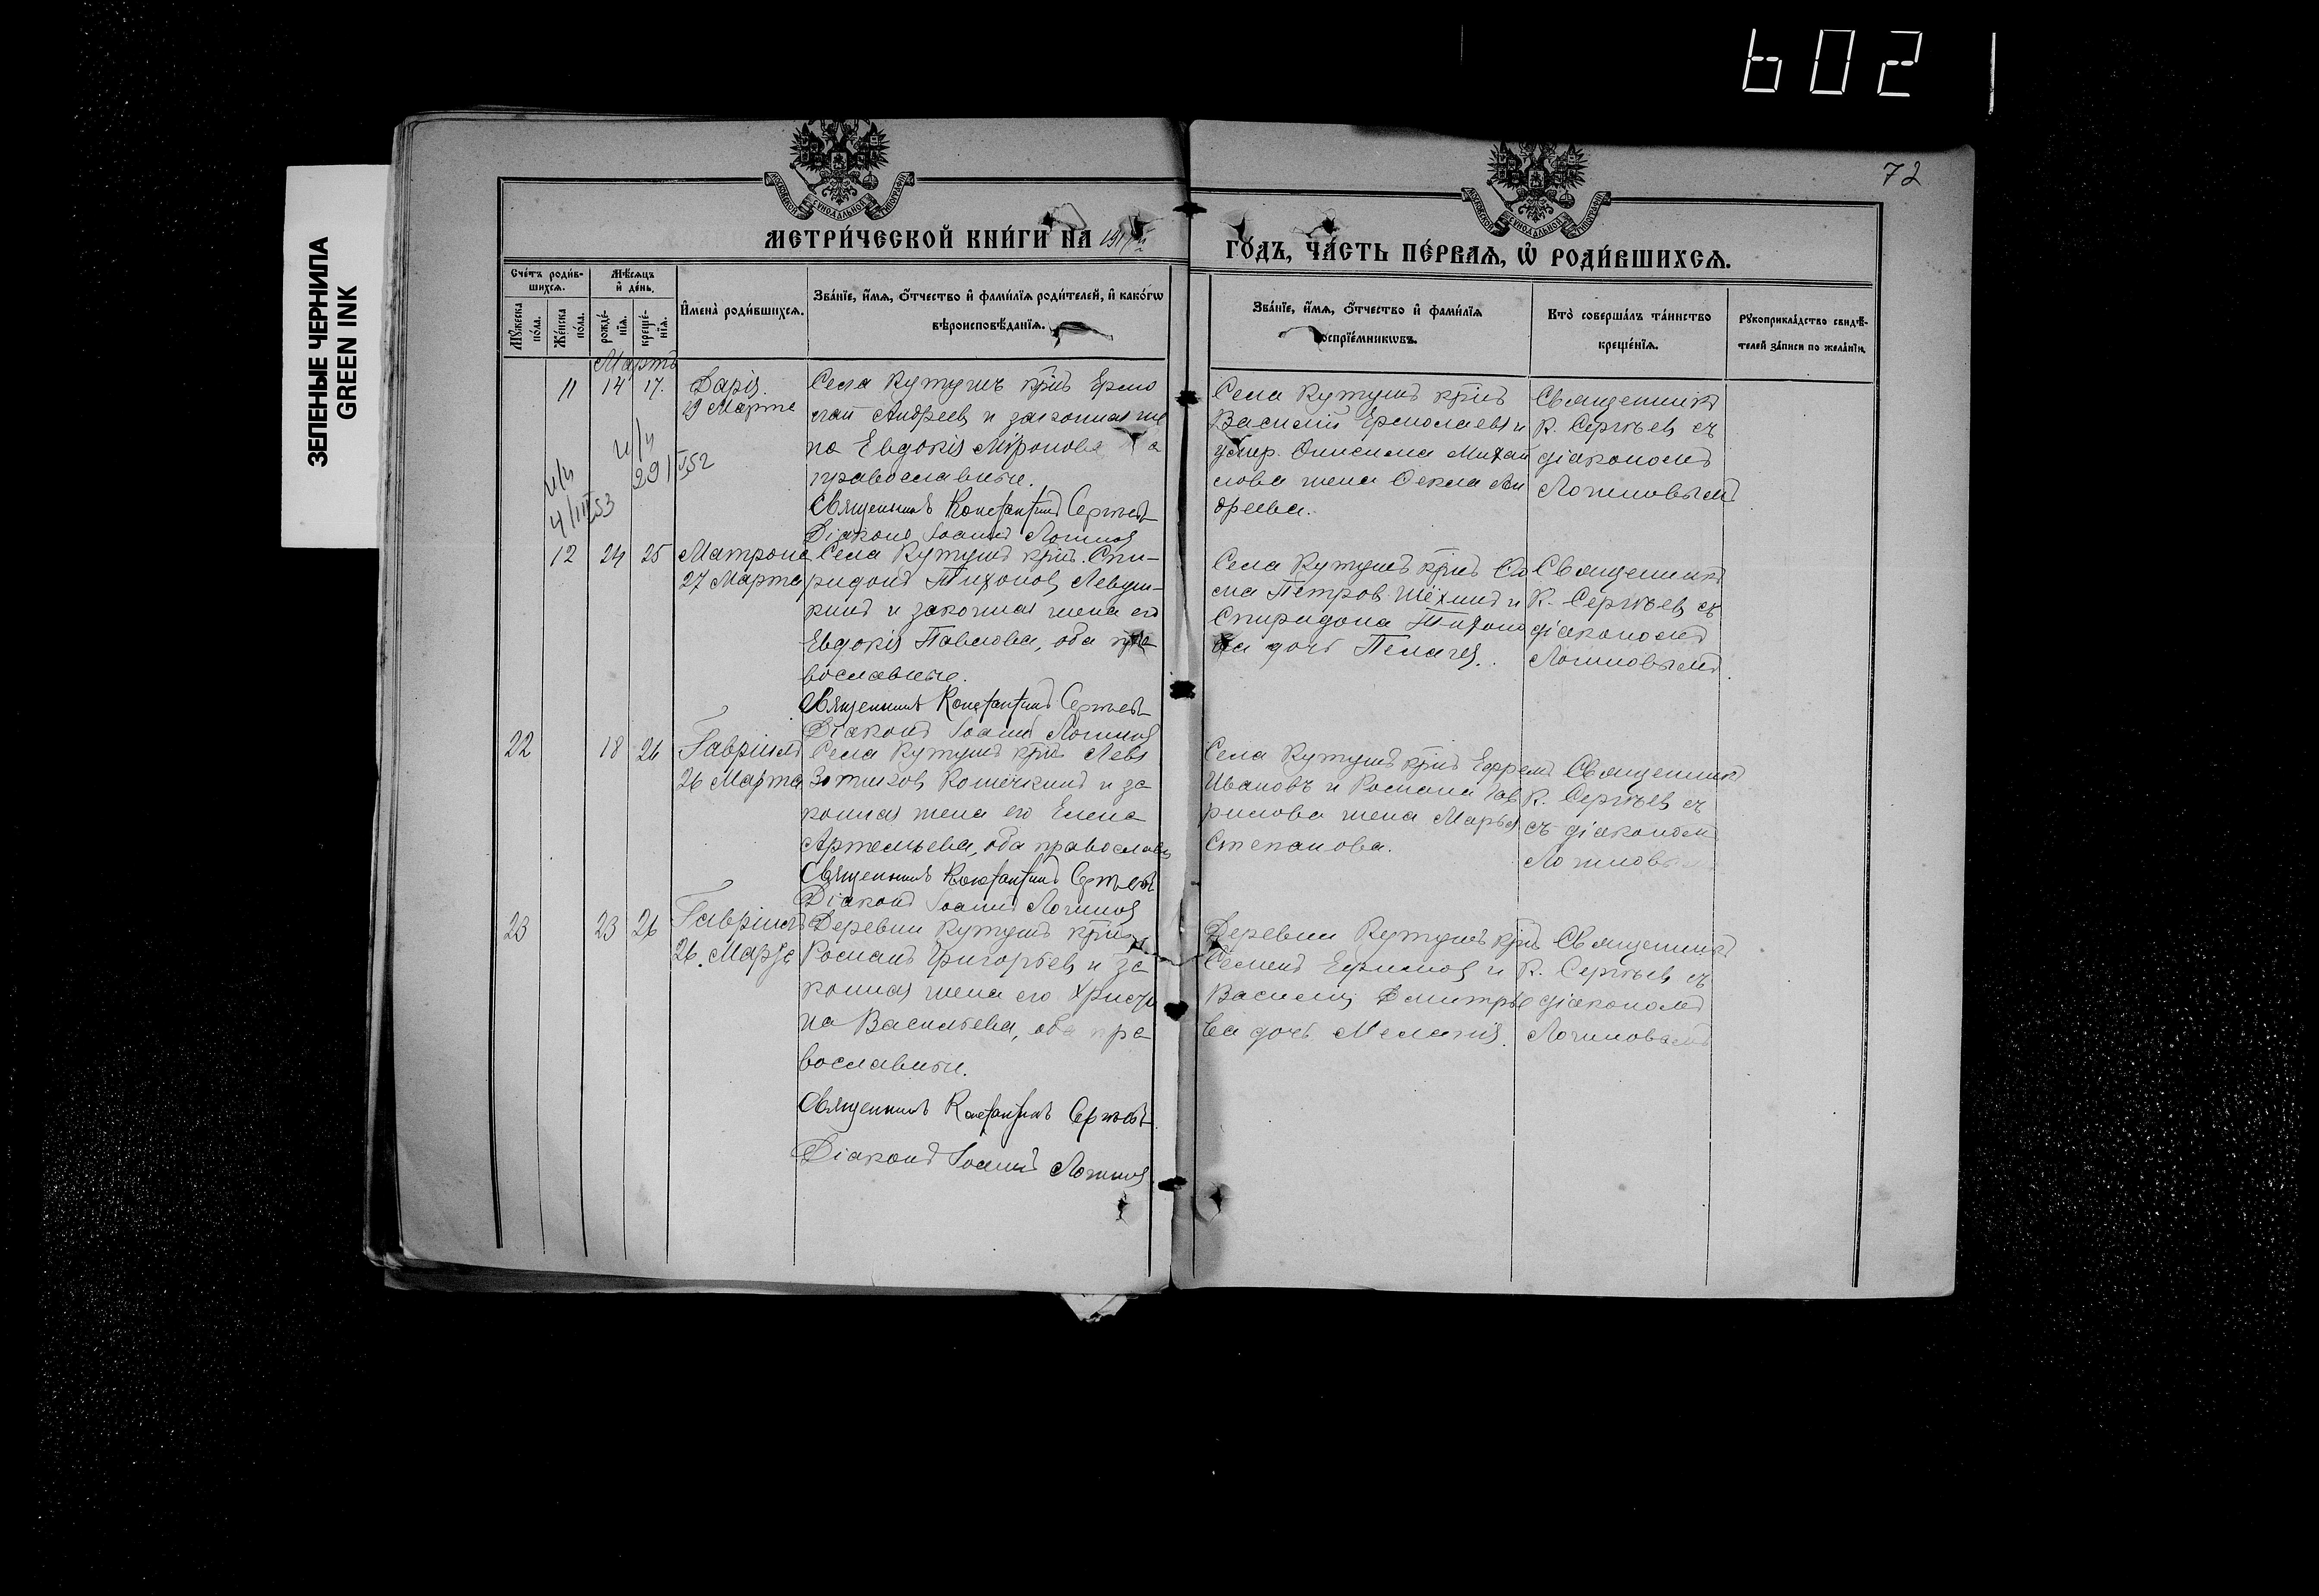 602
72
ЗЕЛЕНЫЕ ЧЕРНИЛА
GREEN INK
МОСКОВСКОЙ СѴНОДАЛЬНОЙ ТИПОГРАФІИ
МОСКОВСКОЙ СѴНОДАЛЬНОЙ ТИПОГРАФІИ
МЕТРИ́ЧЕСКОЙ КНИ́ГИ НА
ГО́ДЪ, ЧА́СТЬ ПЕ́РВАѦ, Ѡ҆ РОДИ́ВШИХСѦ.
Сче́тъ роди́в-
шихсѧ.
Мѣ́сѧцъ
и҆ де́нь.
Мꙋ́жеска
по́ла.
Же́нска
по́ла.
рожде́-
нїѧ.
креще́-
нїѧ.
И҆мена̀ роди́вшихсѧ.
Зва́нїе, и҆́мѧ, ѻ҆́тчество и҆ фами́лїѧ роди́телей, и҆ како́гѡ
вѣроисповѣ́данїѧ.
Зва́нїе, и҆́мѧ, ѻ҆́тчество и҆ фами́лїѧ
воспрїе́мникѡвъ.
Кто̀ соверша́лъ та́инство
креще́нїѧ.
Рꙋкоприкла́дство свидѣ́-
телей за́писи по жела́нїю.
Мартъ
11 14 17. Дарія
19 Марта
Села Кутушъ кр̃нъ Ермо
лай Андреевъ и законная же
на Евдокія Міронова
православные.
Священникъ Константинъ Сергѣевъ
Діаконъ Іоаннъ Логиновъ
Села Кутушъ кр̃нъ
Василій Ермолаевъ и
умер. Онисима Михай
лова жена Ѳекла Ан
дреева.
Священникъ
К. Сергѣевъ съ
діакономъ
Логиновымъ
н/н
29/V52
н/н
4/III53
12 24 25 Матрона
27 Марта
Села Кутушъ кр̃нъ Спи-
ридонъ Тихоновъ Левуш-
кинъ и законная жена его
Евдокія Павлова, оба пра
вославные.
Священникъ Константинъ Сергѣевъ
Діаконъ Іоаннъ Логиновъ
Петров
Спиридона Тихоно
ва дочь Пелагея.
Священникъ
К. Сергѣевъ съ
діакономъ
Логиновымъ
22 18 26 Гавріилъ
26 Марта
Села Кутушъ кр̃нъ Левъ
Зотиковъ Кошечкинъ и за
конная жена его Елена
Артемьева, оба православ
Священникъ Константинъ Сергѣевъ
Діаконъ Іоаннъ Логиновъ
Села Кутушъ кр̃нъ Ефремъ
Ивановъ и Романа Гав
рилова жена Марья
Степанова.
Священникъ
К. Сергѣевъ съ
съ діакономъ
Логиновым
23 23 26 Гавріилъ
26. Марта
Деревни Кутушъ кр̃нъ
Романъ Григорьевъ и за
конная жена его Христи
на Васильева, оба пра
вославные.
Священникъ Константинъ Сергѣевъ
Діаконъ Іоаннъ Логиновъ
Деревни Кутушъ кр̃нъ
Семенъ Ефимовъ и
Василія Дмитріе
ва дочь Меланія.
Священникъ
К. Сергѣевъ съ
діакономъ
Логиновымъ